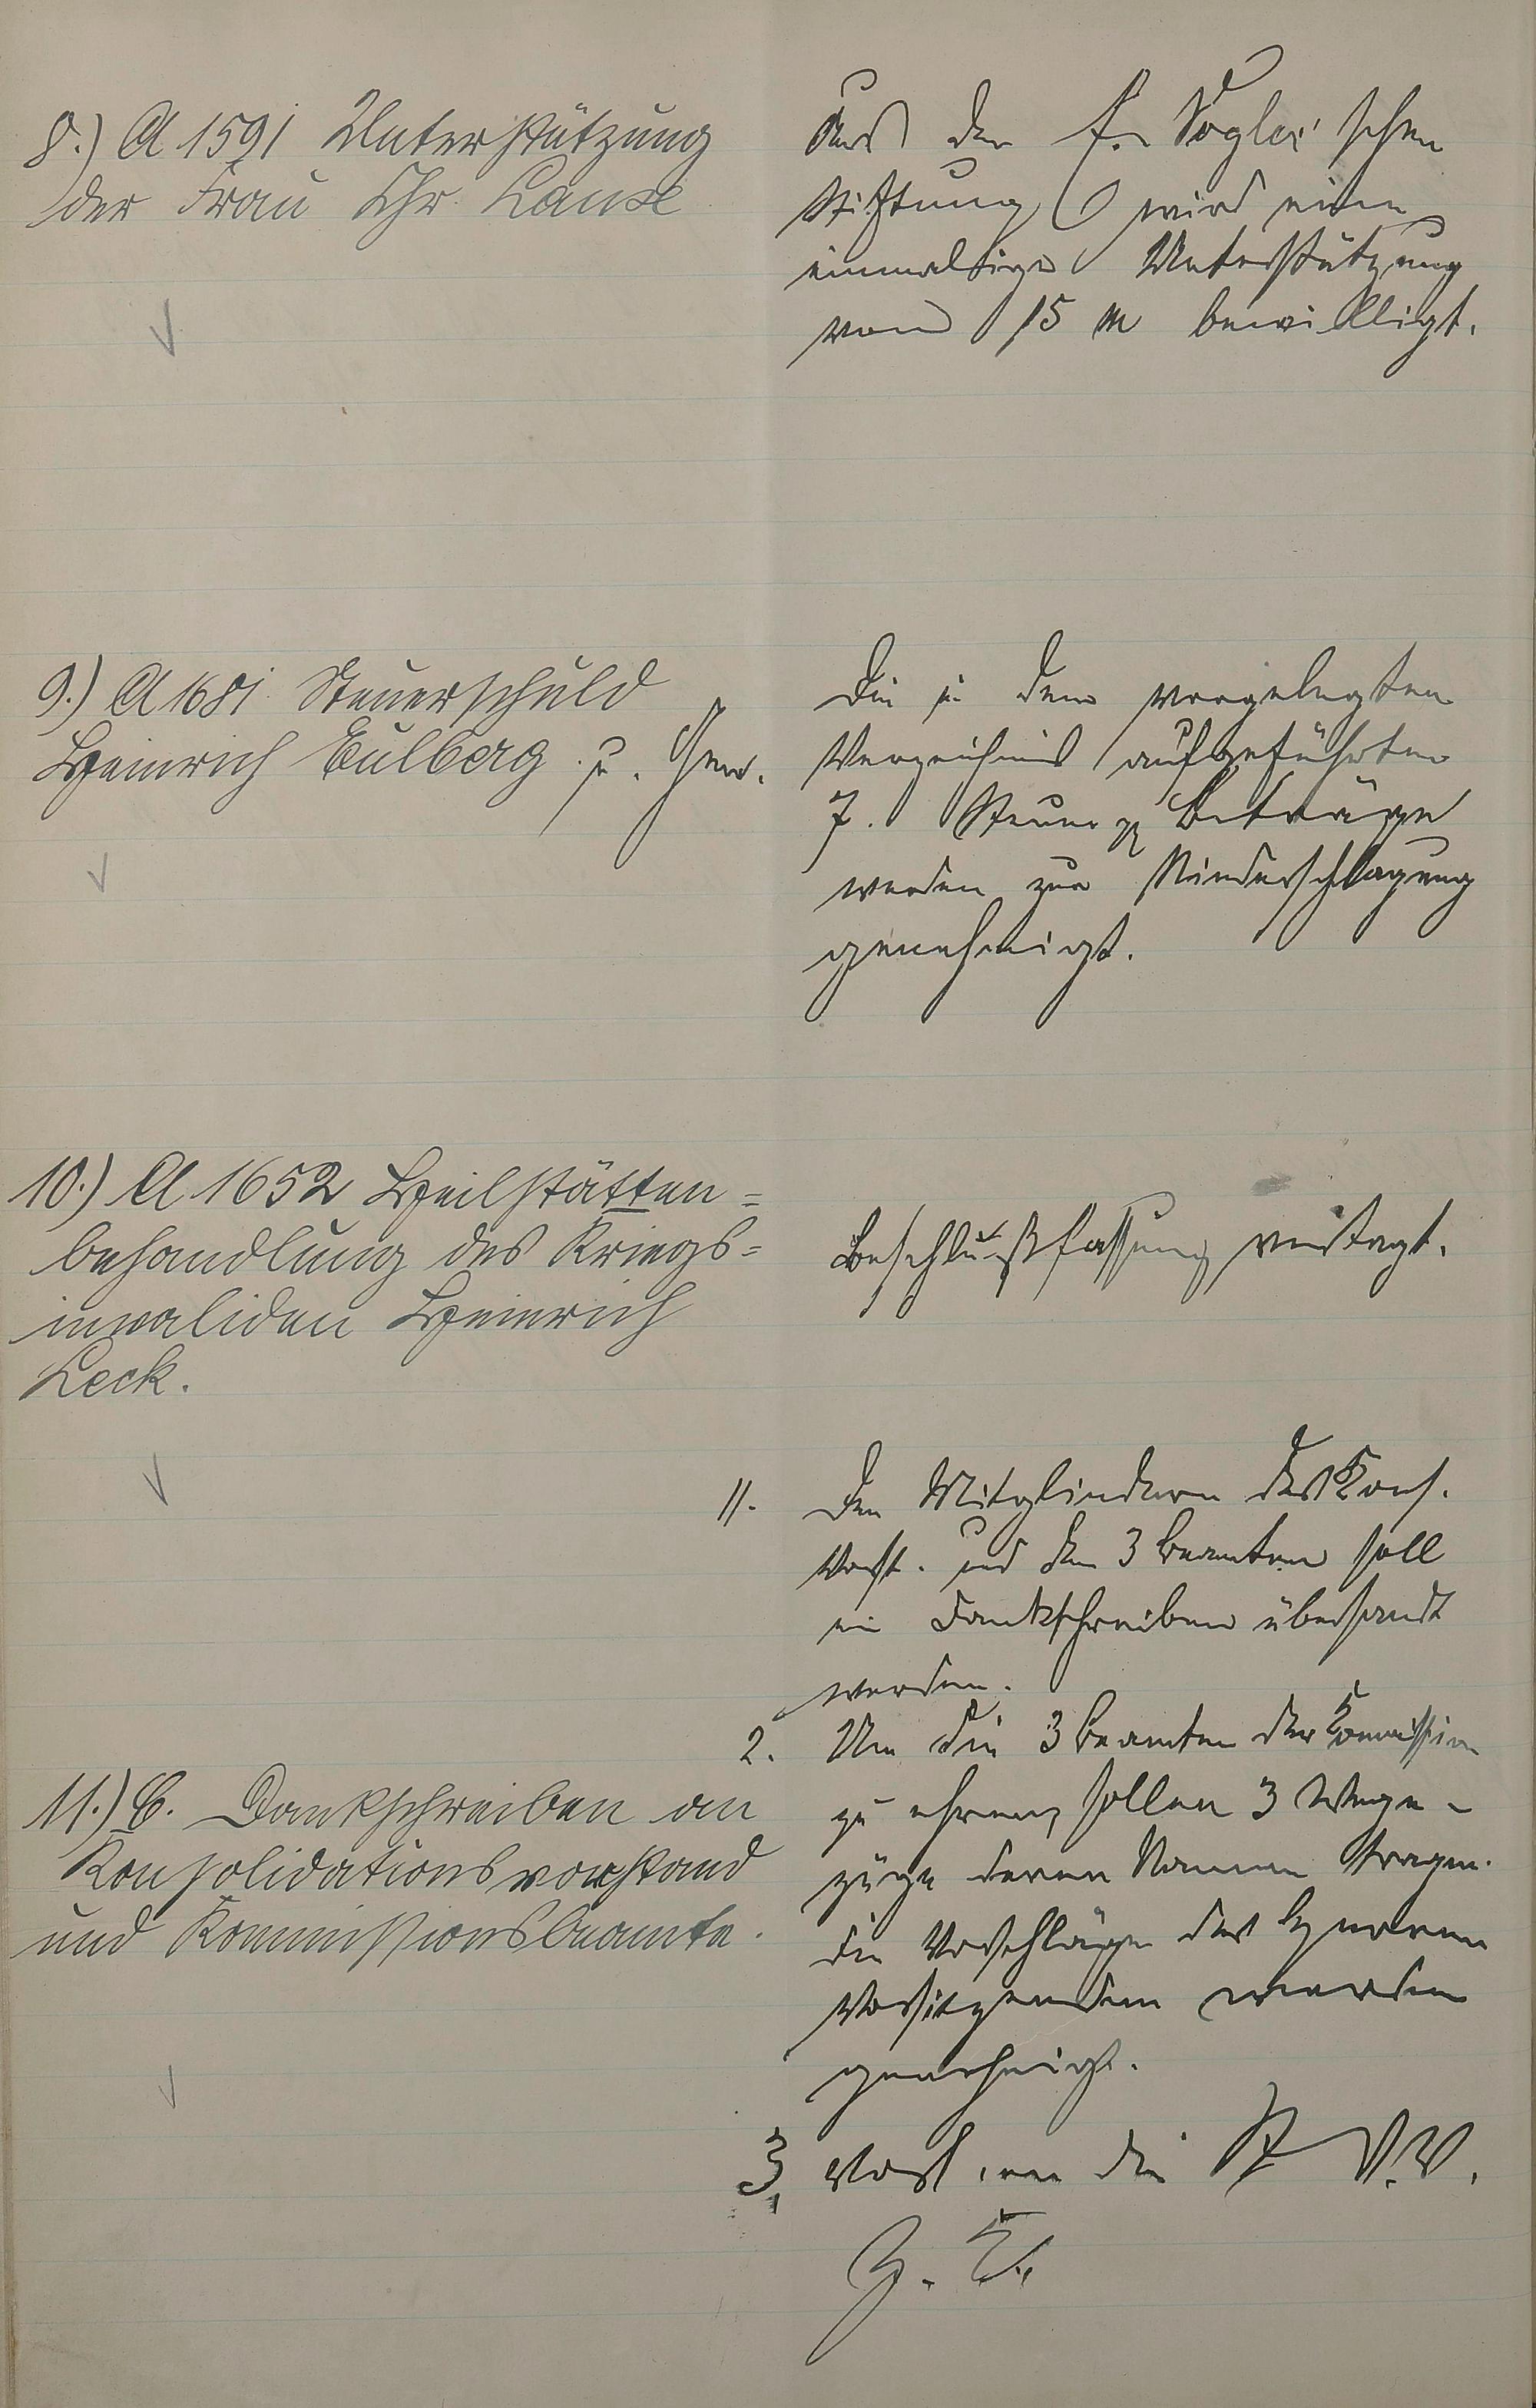 8.) A 1591 Unterstützung
der Frau Chr. Lanxe
Aus der A. Vogler'schen
Stiftung wird eine
einmalige Unterstützung
von 15 M bewilligt.
9.) A 1681 Steuerschuld
Heinrich Eulberg u. Gen.
Die in dem vorgelegten
Verzeichnis aufgeführten
7. Steuer Beträge
werden zur Niederschlagung
genehmigt.
10.) A 1652 Heilstätten=
behandlung des Kriegs=
invaliden Heinrich
Leck.
Beschlußfassung vertagt.
11.) C. Dankschreiben an
Konsolidationsvorstand
und Kommissionsbeamte.
11. Den Mitgliedern des Kons.
Vorst. und den 3 Beamten soll
ein Dankschreiben übersandt
werden.
2. Um die 3 Beamten der Commission
zu ehren, sollen 3 Wege-
züge deren Namen tragen.
Die Vorschläge des Herrn
Vorsitzenden werden
genehmigt.
3. Vorl. an die St. V. V.
Z. K.